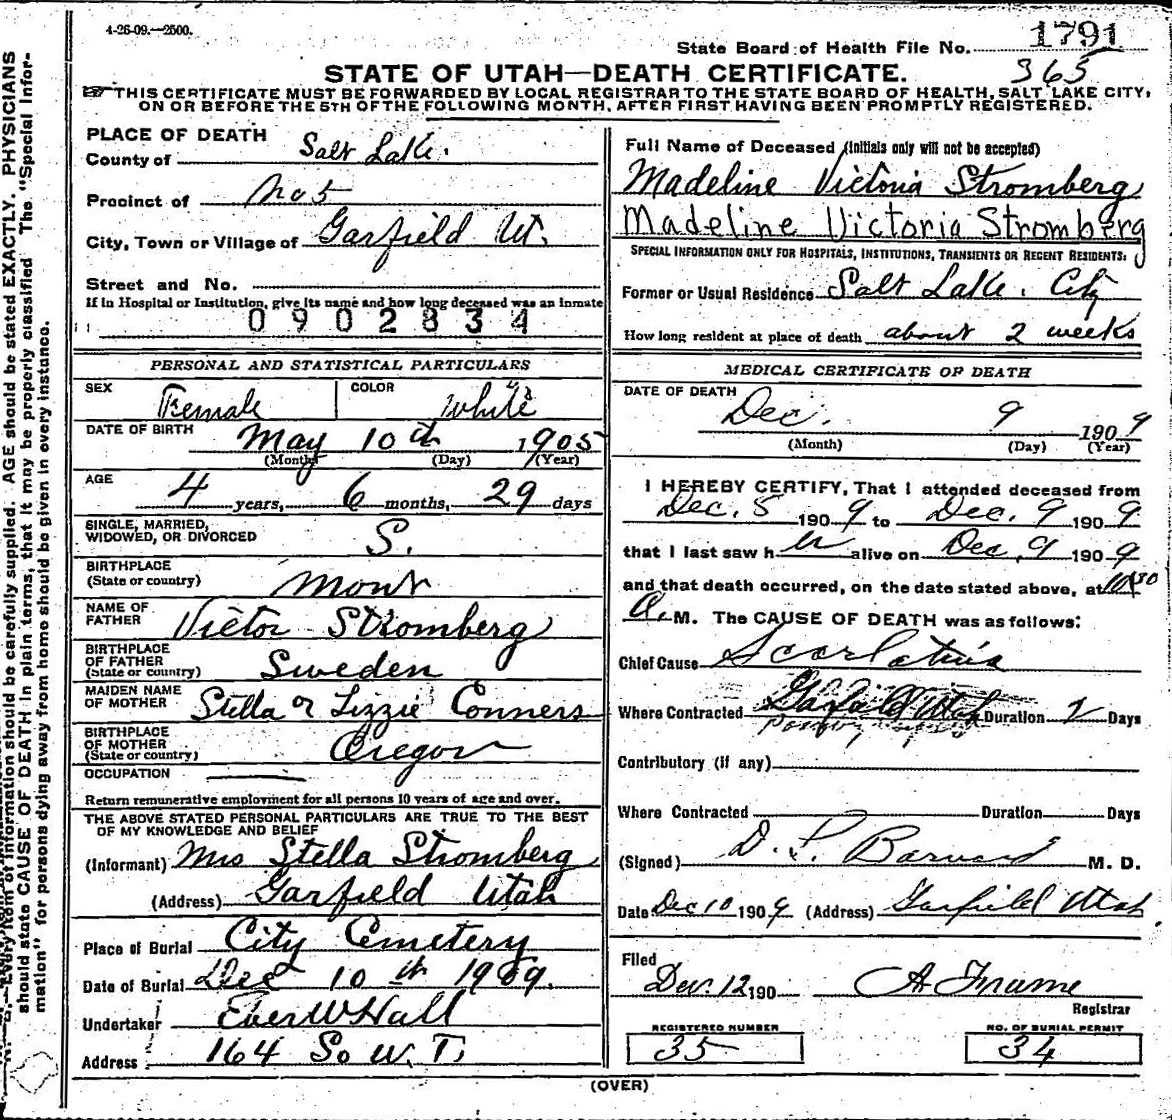 4-26-09.—2500.
State Board of Health File No. 1791
365
STATE OF UTAH—DEATH CERTIFICATE.
THIS CERTIFICATE MUST BE FORWARDED BY LOCAL REGISTRAR TO THE STATE BOARD OF HEALTH, SALT LAKE CITY,
ON OR BEFORE THE 5TH OF THE FOLLOWING MONTH, AFTER FIRST HAVING BEEN PROMPTLY REGISTERED.
PLACE OF DEATH
County of Salt Lake.
Precinct of No 5
City, Town or Village of Garfield Ut.
Street and No.
If in Hospital or Institution, give its name and how long deceased was an inmate
0902834
PERSONAL AND STATISTICAL PARTICULARS
SEX Female COLOR White
DATE OF BIRTH May 10th 1905
(Month) (Day) (Year)
AGE 4 years, 6 months, 29 days
SINGLE, MARRIED,
WIDOWED, OR DIVORCED S.
BIRTHPLACE
(State or country) Mont
NAME OF
FATHER Victor Stromberg
BIRTHPLACE
OF FATHER
(State or country) Sweden
MAIDEN NAME
OF MOTHER Stella or Lizzie Conners
BIRTHPLACE
OF MOTHER
(State or country) Oregon
OCCUPATION
Return remunerative employment for all persons 10 years of age and over.
THE ABOVE STATED PERSONAL PARTICULARS ARE TRUE TO THE BEST
OF MY KNOWLEDGE AND BELIEF
(Informant) Mrs Stella Stromberg
(Address) Garfield Utah
Place of Burial City Cemetery
Date of Burial Dec 10th 1909.
Undertaker Eber W Hall
Address 164 So W. T.
Full Name of Deceased (initials only will not be accepted)
Madeline Victoria Stromberg
Madeline Victoria Stromberg
SPECIAL INFORMATION ONLY FOR HOSPITALS, INSTITUTIONS, TRANSIENTS OR RECENT RESIDENTS:
Former or Usual Residence Salt Lake. City
How long resident at place of death about 2 weeks
MEDICAL CERTIFICATE OF DEATH
DATE OF DEATH
Dec. 9 1909
(Month) (Day) (Year)
I HEREBY CERTIFY, That I attended deceased from
Dec. 5 1909 to Dec. 9 1909
that I last saw her alive on Dec. 9 1909
and that death occurred, on the date stated above, at 10:30
A. M. The CAUSE OF DEATH was as follows:
Chief Cause Scarlatina
Where Contracted Garfield Utah Duration 7 Days
Contributory (if any)
Where Contracted Duration Days
(Signed) D. S. Barnard M. D.
Date Dec 10 1909 (Address) Garfield Utah
Filed
Dec. 12, 190 A Frame
Registrar
REGISTERED NUMBER
35
NO. OF BURIAL PERMIT
34
(OVER)
Every item of information should be carefully supplied. AGE should be stated EXACTLY. PHYSICIANS
should state CAUSE OF DEATH in plain terms, that it may be properly classified The "Special Infor-
mation" for persons dying away from home should be given in every instance.